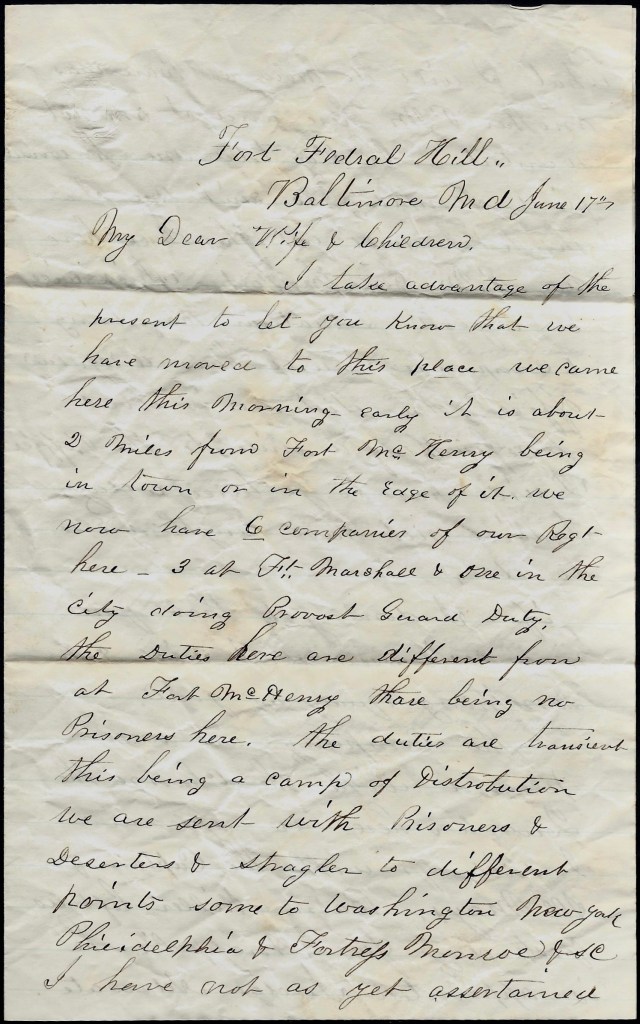 Fort Fedral Hill,,
Baltimore Md June 17th
My Dear Wife & Children.
I take advantage of the
present to let you Know that we
have moved to this place we came
here this Morning early it is about
2 Miles from Fort Mc Henry being
in town or in the Edge of it. we
now have 6 companies of our Regt
here - 3 at Ft. Marshall & one in the
City doing Provost Guard Duty,
the Duties here are different from
at Fort McHenry thare being no
Prisoners here. the duties are transient
this being a camp of Distrobution
we are sent with Prisoners &
Deserters & stragler to different
points some to Washington New York
Phieidelphia & Fortress Monroe & &c
I have not as yet assertained